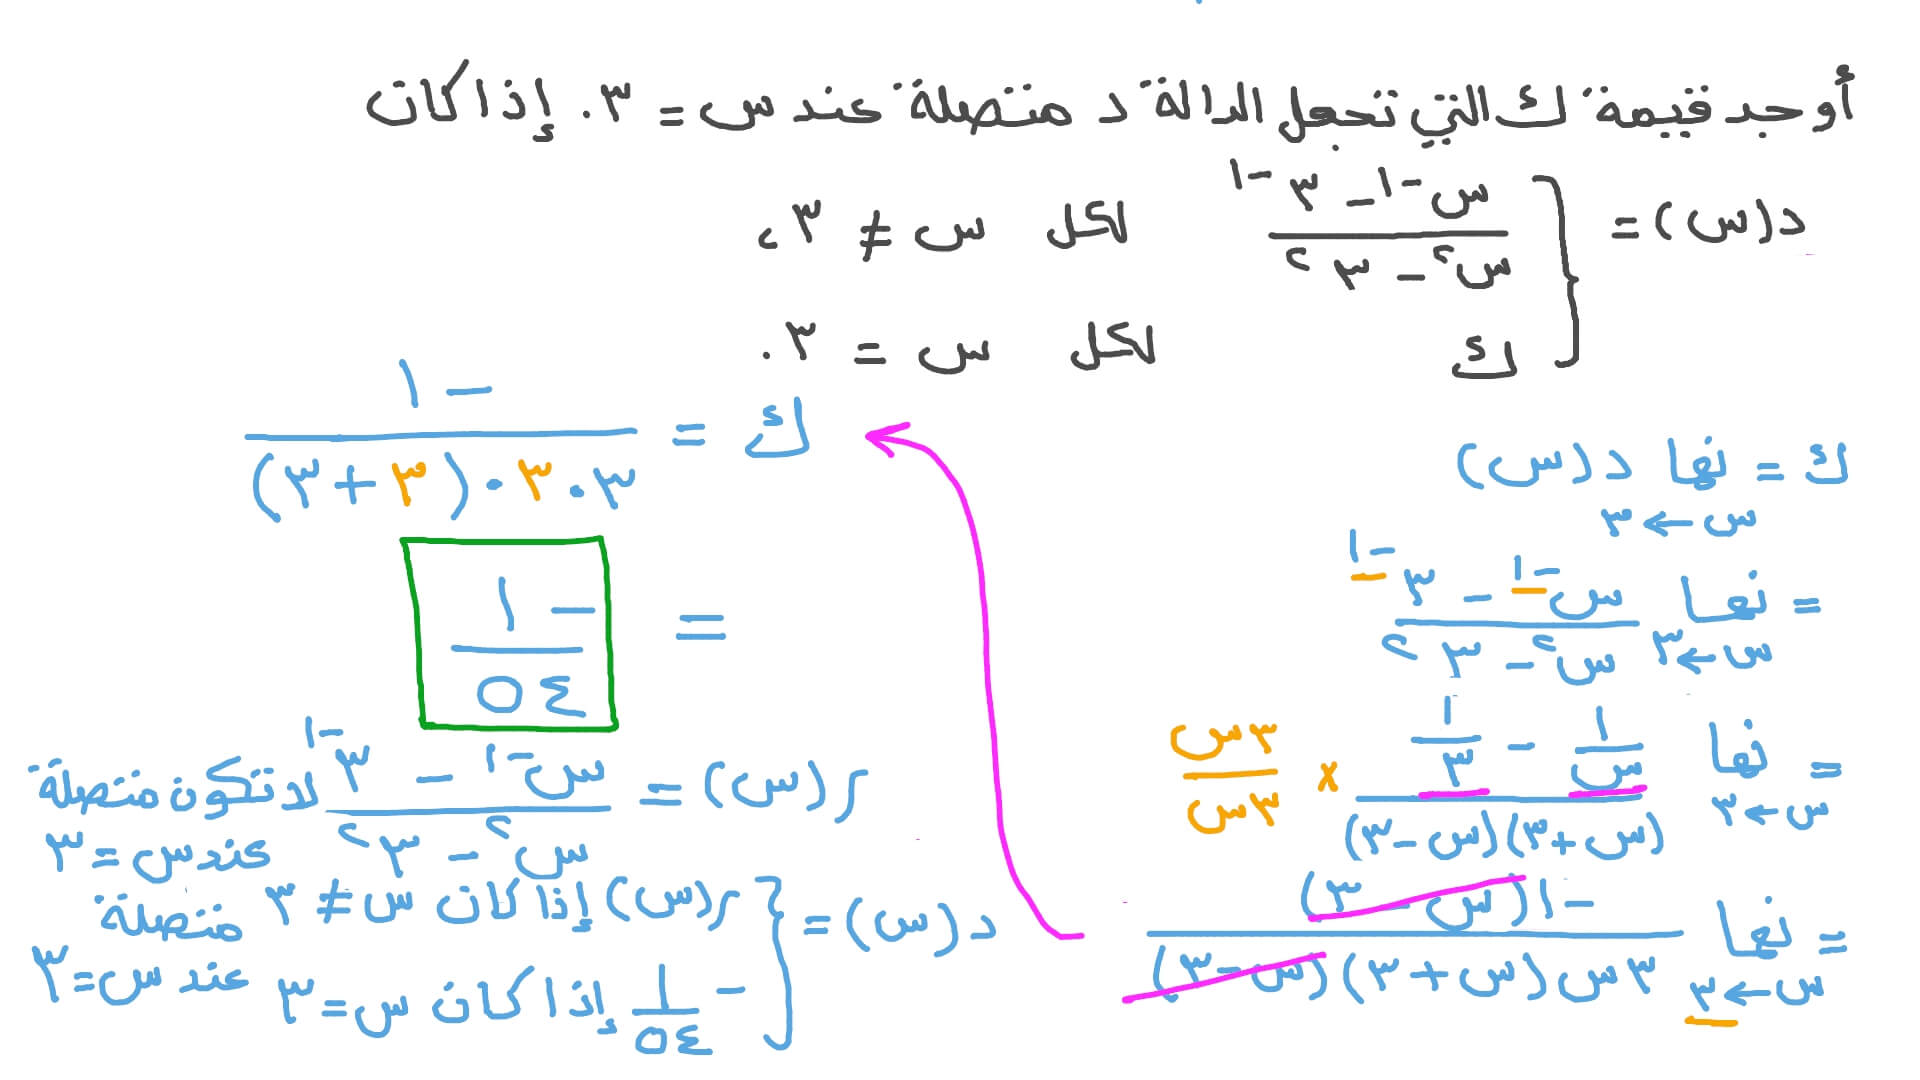 أوجد قيمة ك التي تجعل الدالة د متصلة عند س = ٣. إذا كان
د(س) = { (س^-١ - ٣^-١)/(س^٢ - ٣^٢) لكل س ≠ ٣،
ك لكل س = ٣.
ك = نها د(س)
س ← ٣
= نها (س^-١ - ٣^-١)/(س^٢ - ٣^٢)
س ← ٣
= نها (١/س - ١/٣)/((س+٣)(س-٣)) × ٣س/٣س
س ← ٣
= نها -١(س - ٣)/(٣س(س+٣)(س-٣))
س ← ٣
ك = -١/(٣·٣·(٣+٣))
= -١/٥٤
ر(س) = (س^-١ - ٣^-١)/(س^٢ - ٣^٢) لا تكون متصلة
عند س = ٣
د(س) = { ر(س) إذا كان س ≠ ٣ متصلة
-١/٥٤ إذا كان س = ٣ عند س = ٣